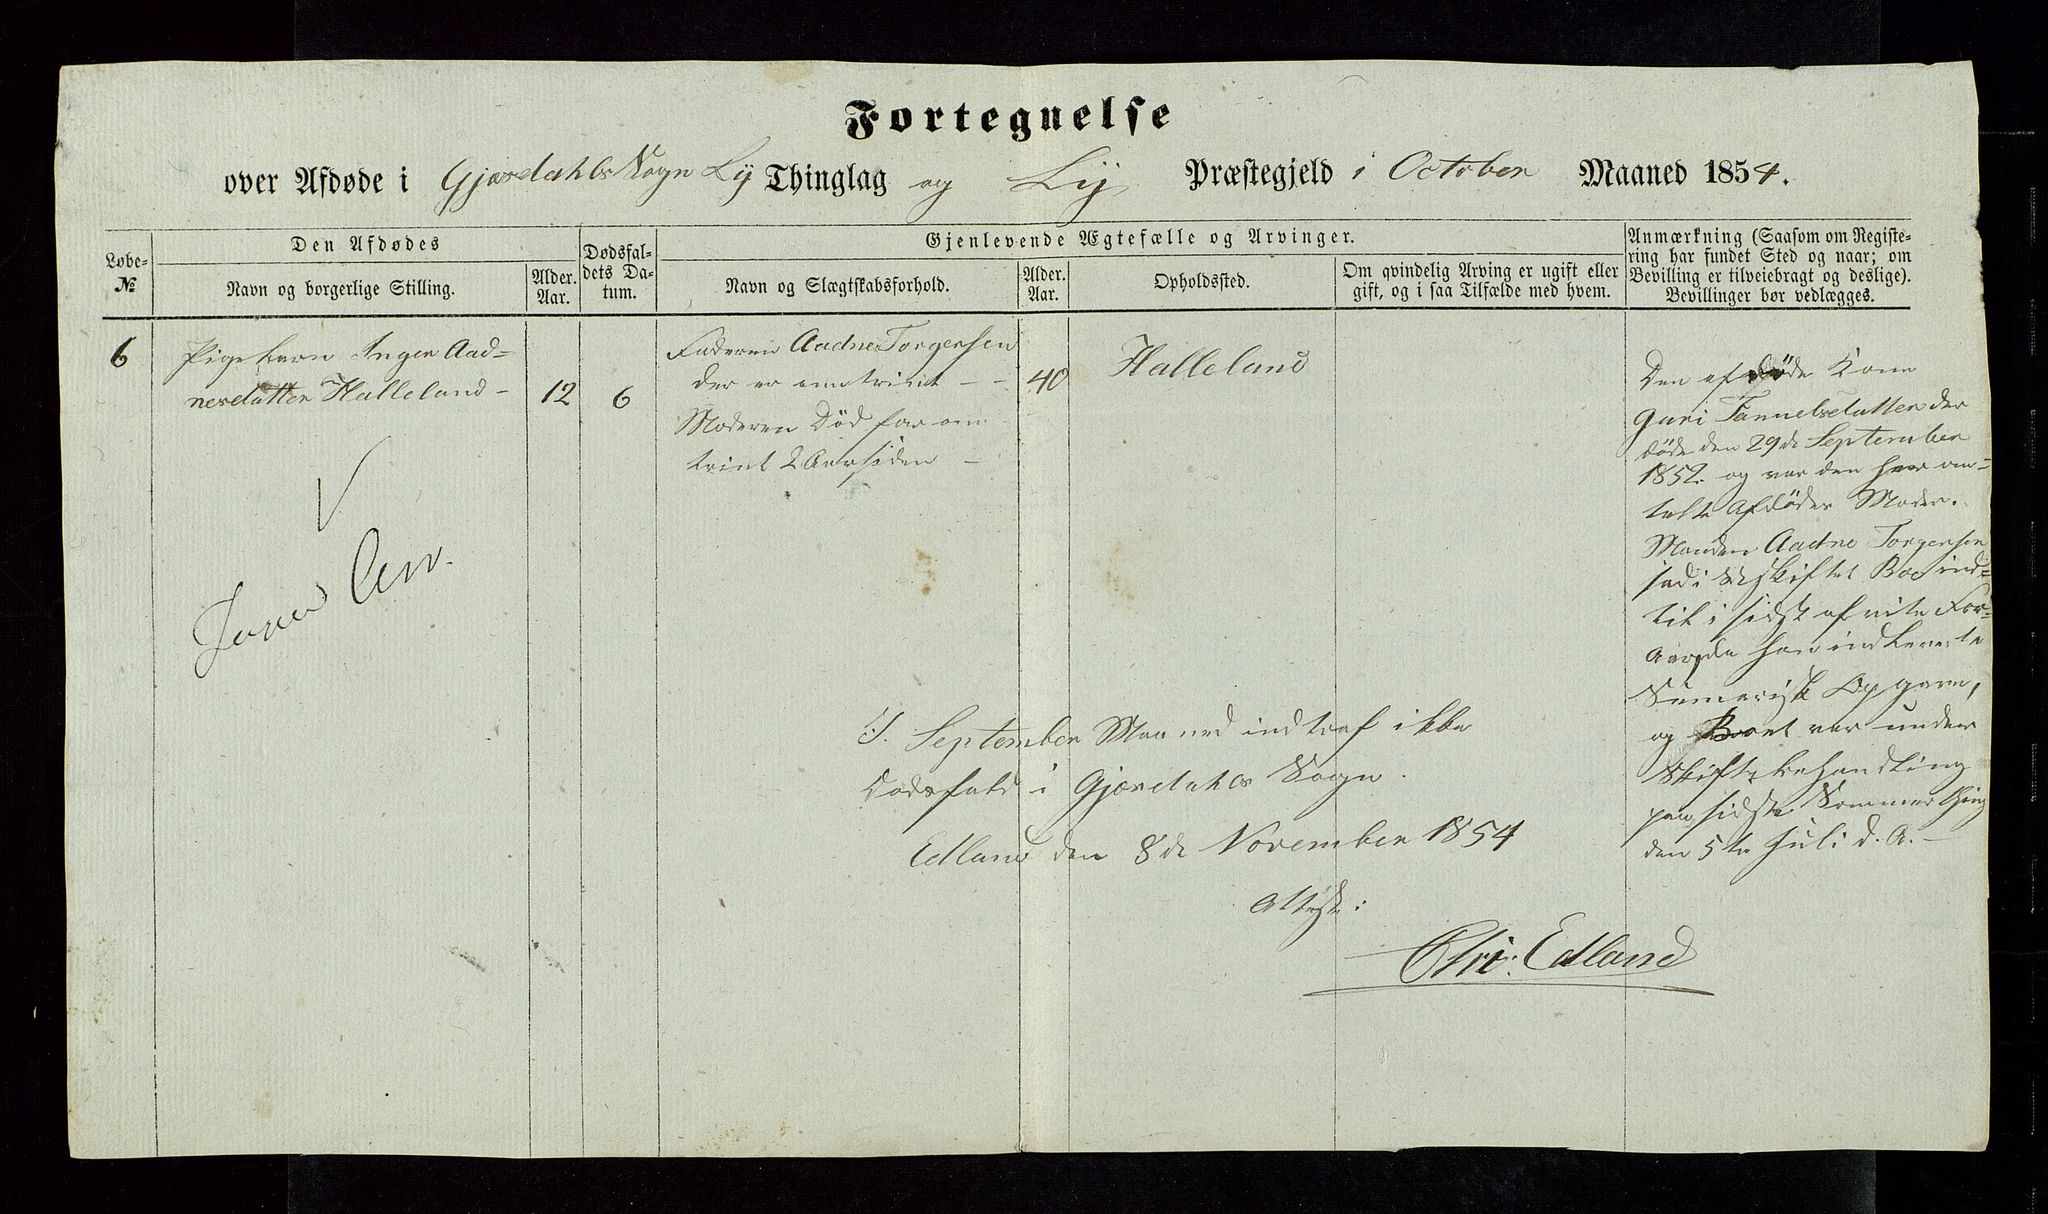 Fortegnelse
over Afdøde i Gjæsdahls Sogn Ly Thinglag og Ly Præstegjeld i October Maaned 1854.
Løbe-
№
Den Afdødes
Navn og borgerlige Stilling.
Alder.
Aar.
Dødsfal-
dets Da-
tum.
Gjenlevende Ægtefælle og Arvinger.
Navn og Slægtskabsforhold.
Alder.
Aar.
Opholdssted.
Om qvindelig Arving er ugift eller
gift, og i saa Tilfælde med hvem.
Anmærkning (Saasom om Registe-
ring har fundet Sted og naar; om
Bevilling er tilveiebragt og deslige).
Bevillinger bør vedlægges.
6
Pigebarn Inger Aad-
nesdatter Halleland -
12
6
Faderen Aadne Torgersen
der er omtrint - -
Moderen Død for om
trint 2 Aar siden -
40
Halleland
Den afdøde Kone
Guri Tønnelsdatter der
døde den 29de September
1852 og var den her om-
talte Afdødes Moder.
Manden Aadne Torgersen
sad i uskiftet Boe ind-
til i sidst af vite For-
Aar da han indleverte
Sumarisk Opgave,
og Boet var under
Skiftebehandling
paa sidste Sommerthing
den 5te Juli d. A. -
I September Maaned indtraf ikke
Dødsfald i Gjæsdahls Sogn.
Edland den 8de November 1854
Attest:
Chri: Edland